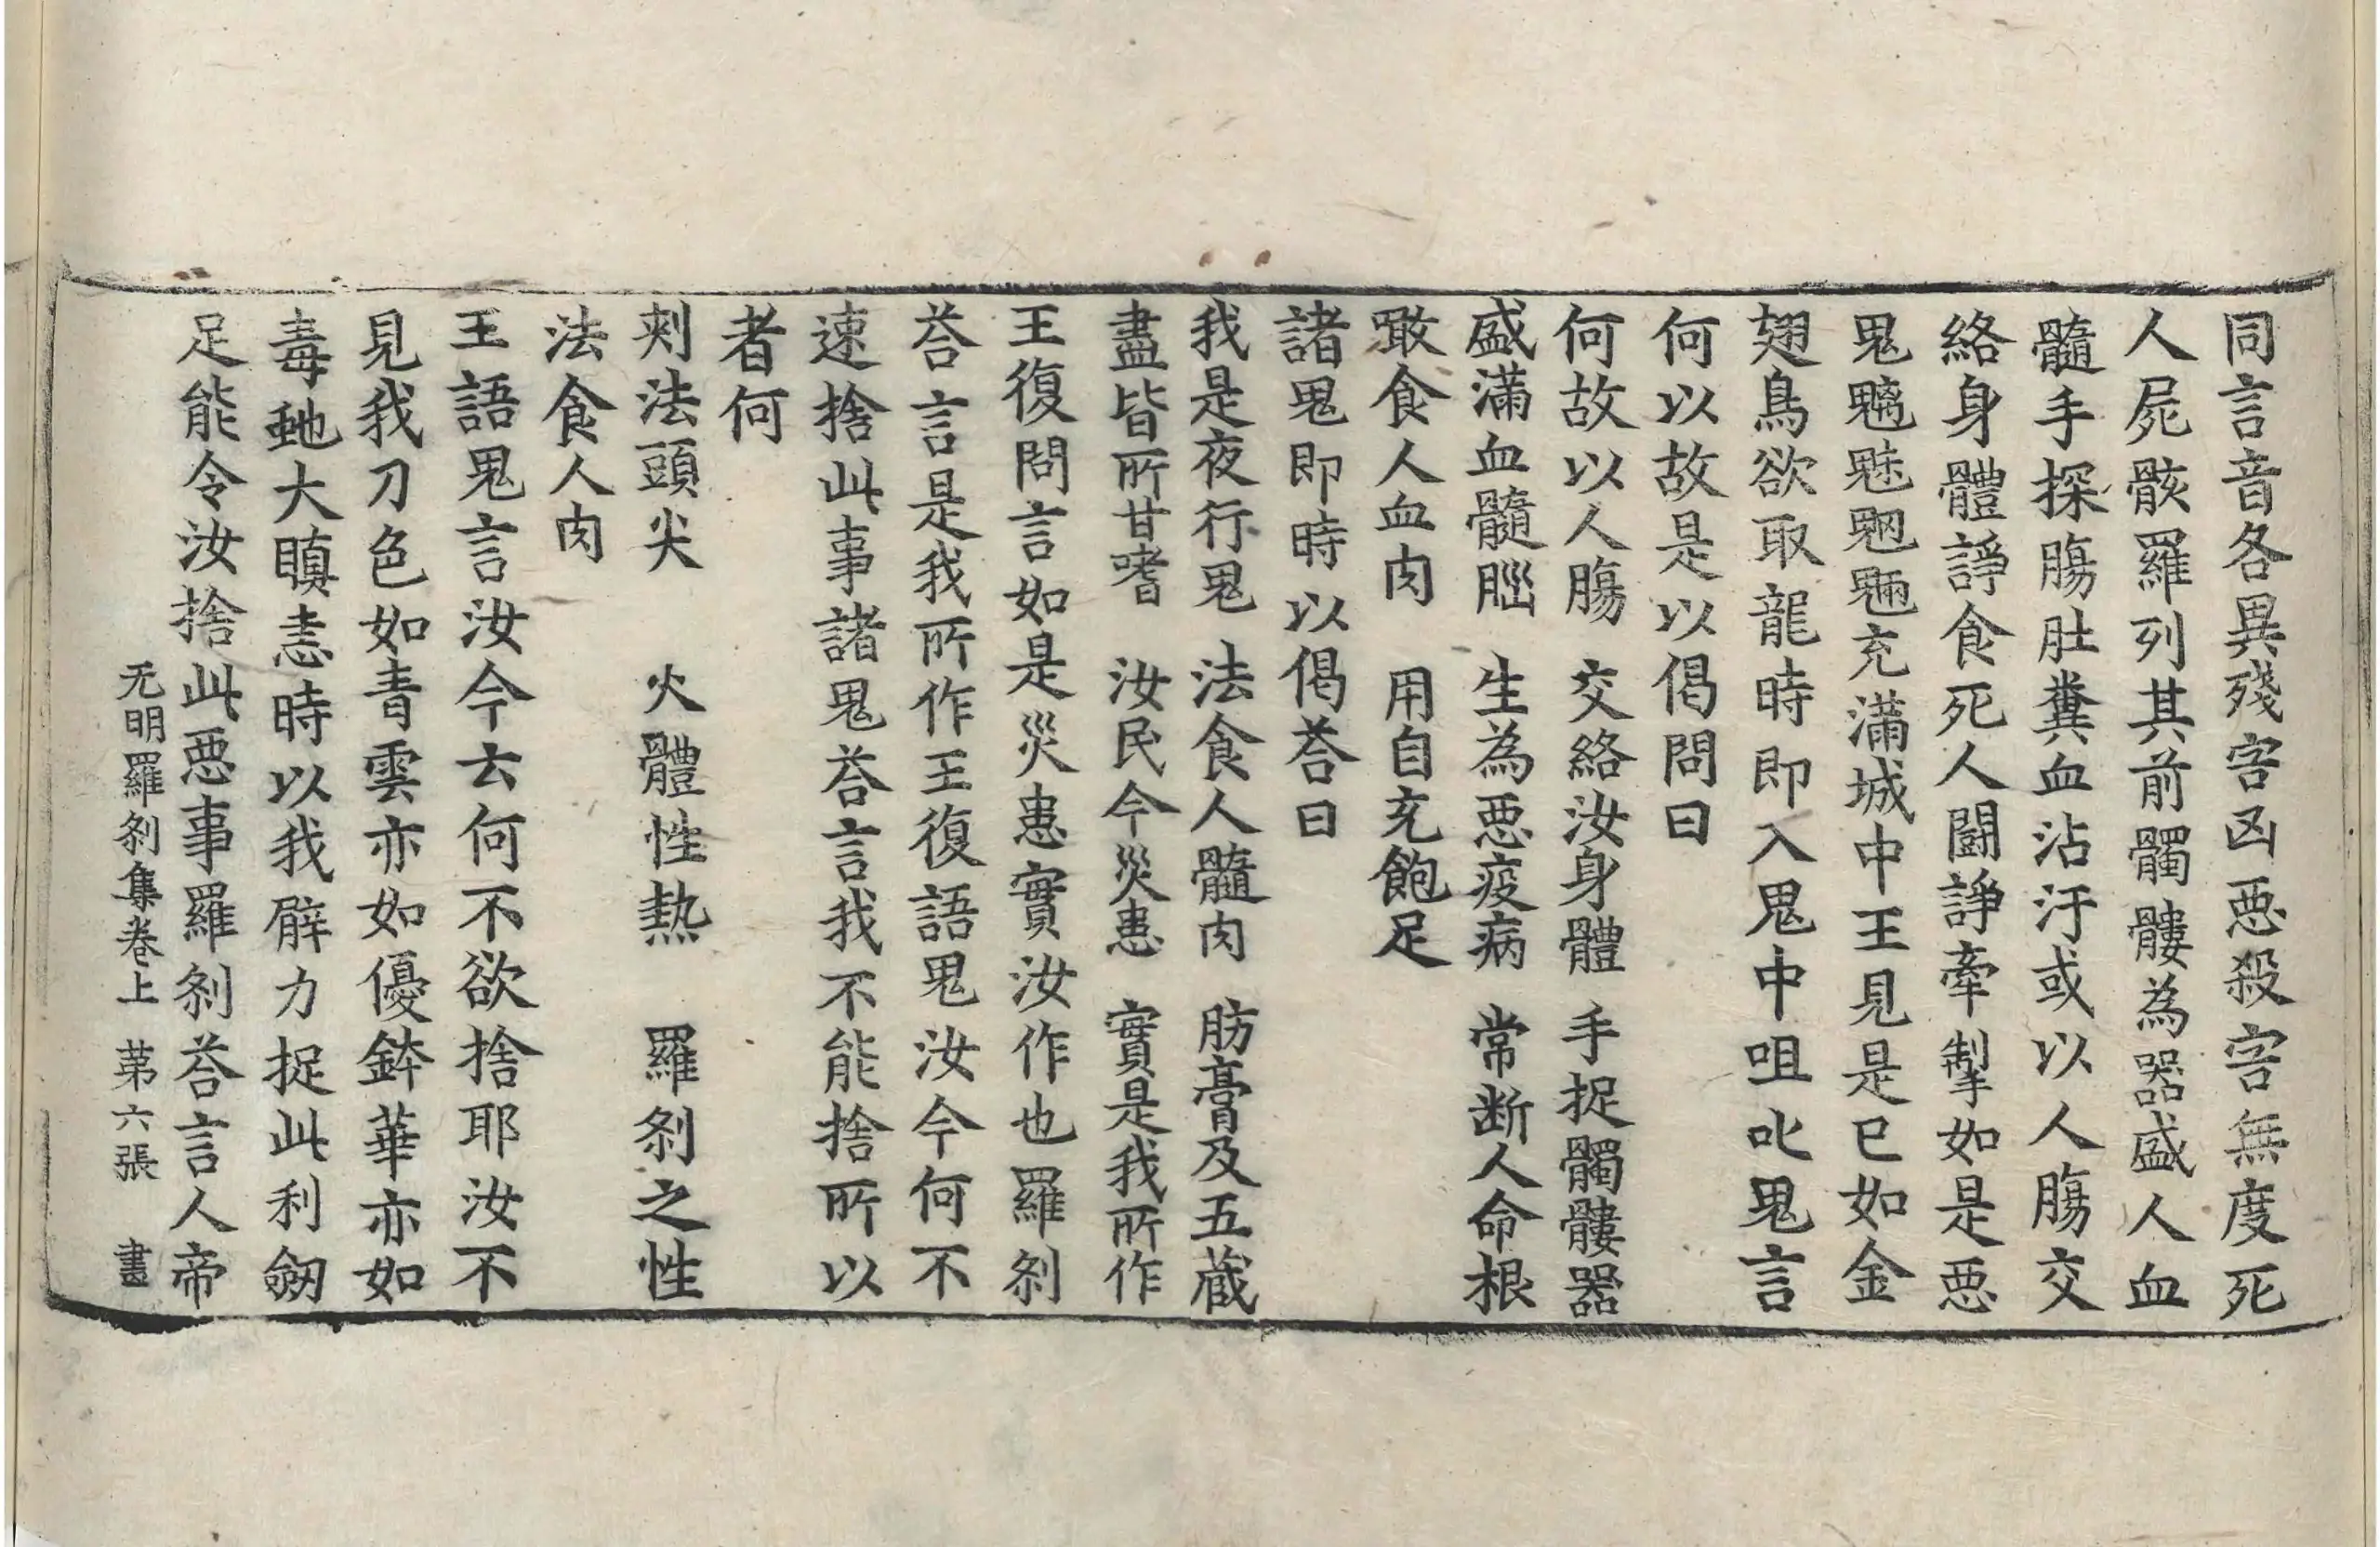 同言音各異殘害凶惡殺害無度死
人屍骸羅列其前髑髏為器盛人血
髓手探腸肚糞血沾汙或以人腸交
絡身體諍食死人鬪諍牽掣如是惡
鬼魑魅魍魎充滿城中王見是已如金
翅鳥欲取龍時即入鬼中咀叱鬼言
何以故是以偈問曰
何故以人腸　交絡汝身體　手捉髑髏器
盛滿血髓腦　生為惡疫病　常断人命根
噉食人血肉　用自充飽足
諸鬼即時以偈荅曰
我是夜行鬼　法食人髓肉　肪膏及五蔵
盡皆所甘嗜　汝民今災患　實是我所作
王復問言如是災患實汝作也羅剎
荅言是我所作王復語鬼汝今何不
速捨此事諸鬼荅言我不能捨所以
者何
刾法頭尖　火體性熱　羅剎之性
法食人肉
王語鬼言汝今去何不欲捨耶汝不
見我刀色如青雲亦如優鉢華亦如
毒虵大瞋恚時以我臂力捉此利劒
足能令汝捨此惡事羅剎荅言人帝
无明羅剎集卷上　第六張　書